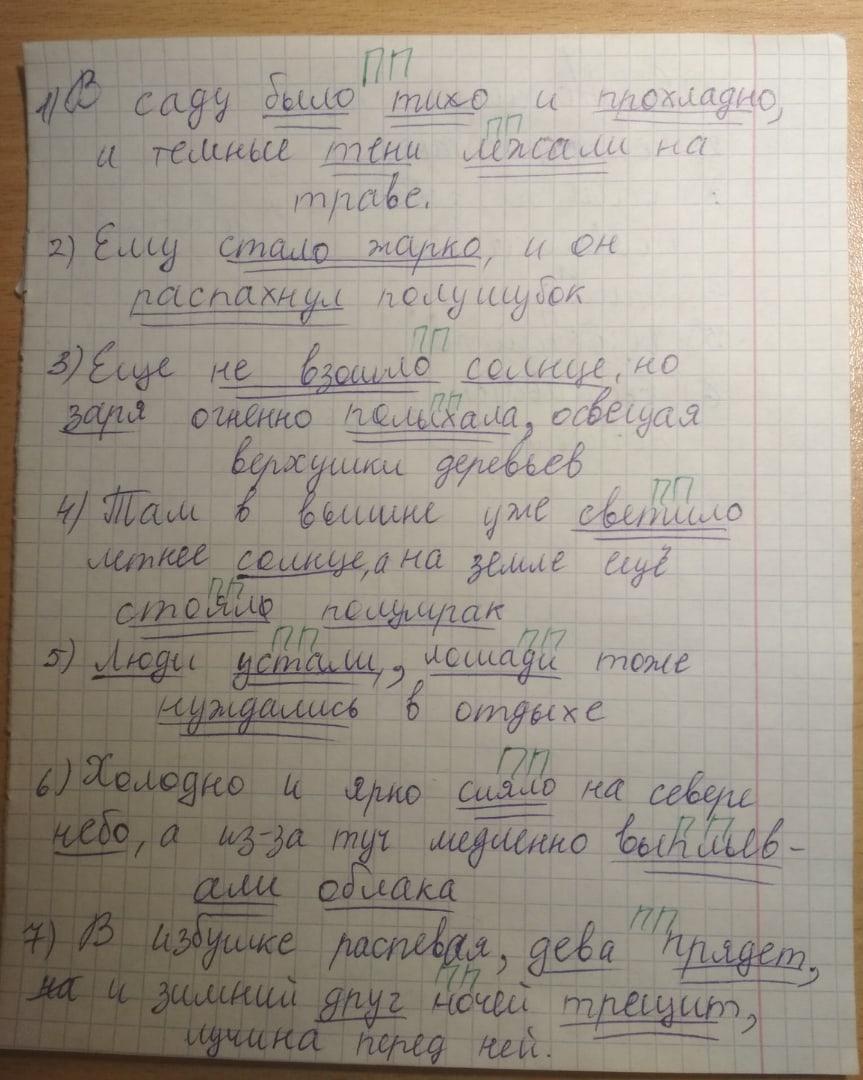 ПП
1) В саду было тихо и прохладно,
ПП
и темные тени лежали на
траве.
2) Ему стало жарко, и он
распахнул полушубок
ПП
3) Еще не взошло солнце, но
ПП
заря огненно полыхала, освещая
верхушки деревьев
ПП
4) Там в вышине уже светило
летнее солнце, а на земле ещё
ПП
стояло полумрак
ПП ПП
5) Люди устали, лошади тоже
нуждались в отдыхе
ПП
6) Холодно и ярко сияло на севере
ПП
небо, а из-за туч медленно выплыв-
али облака
ПП
7) В избушке распевая, дева прядет,
ПП
и зимний друг ночей трещит,
лучина перед ней.